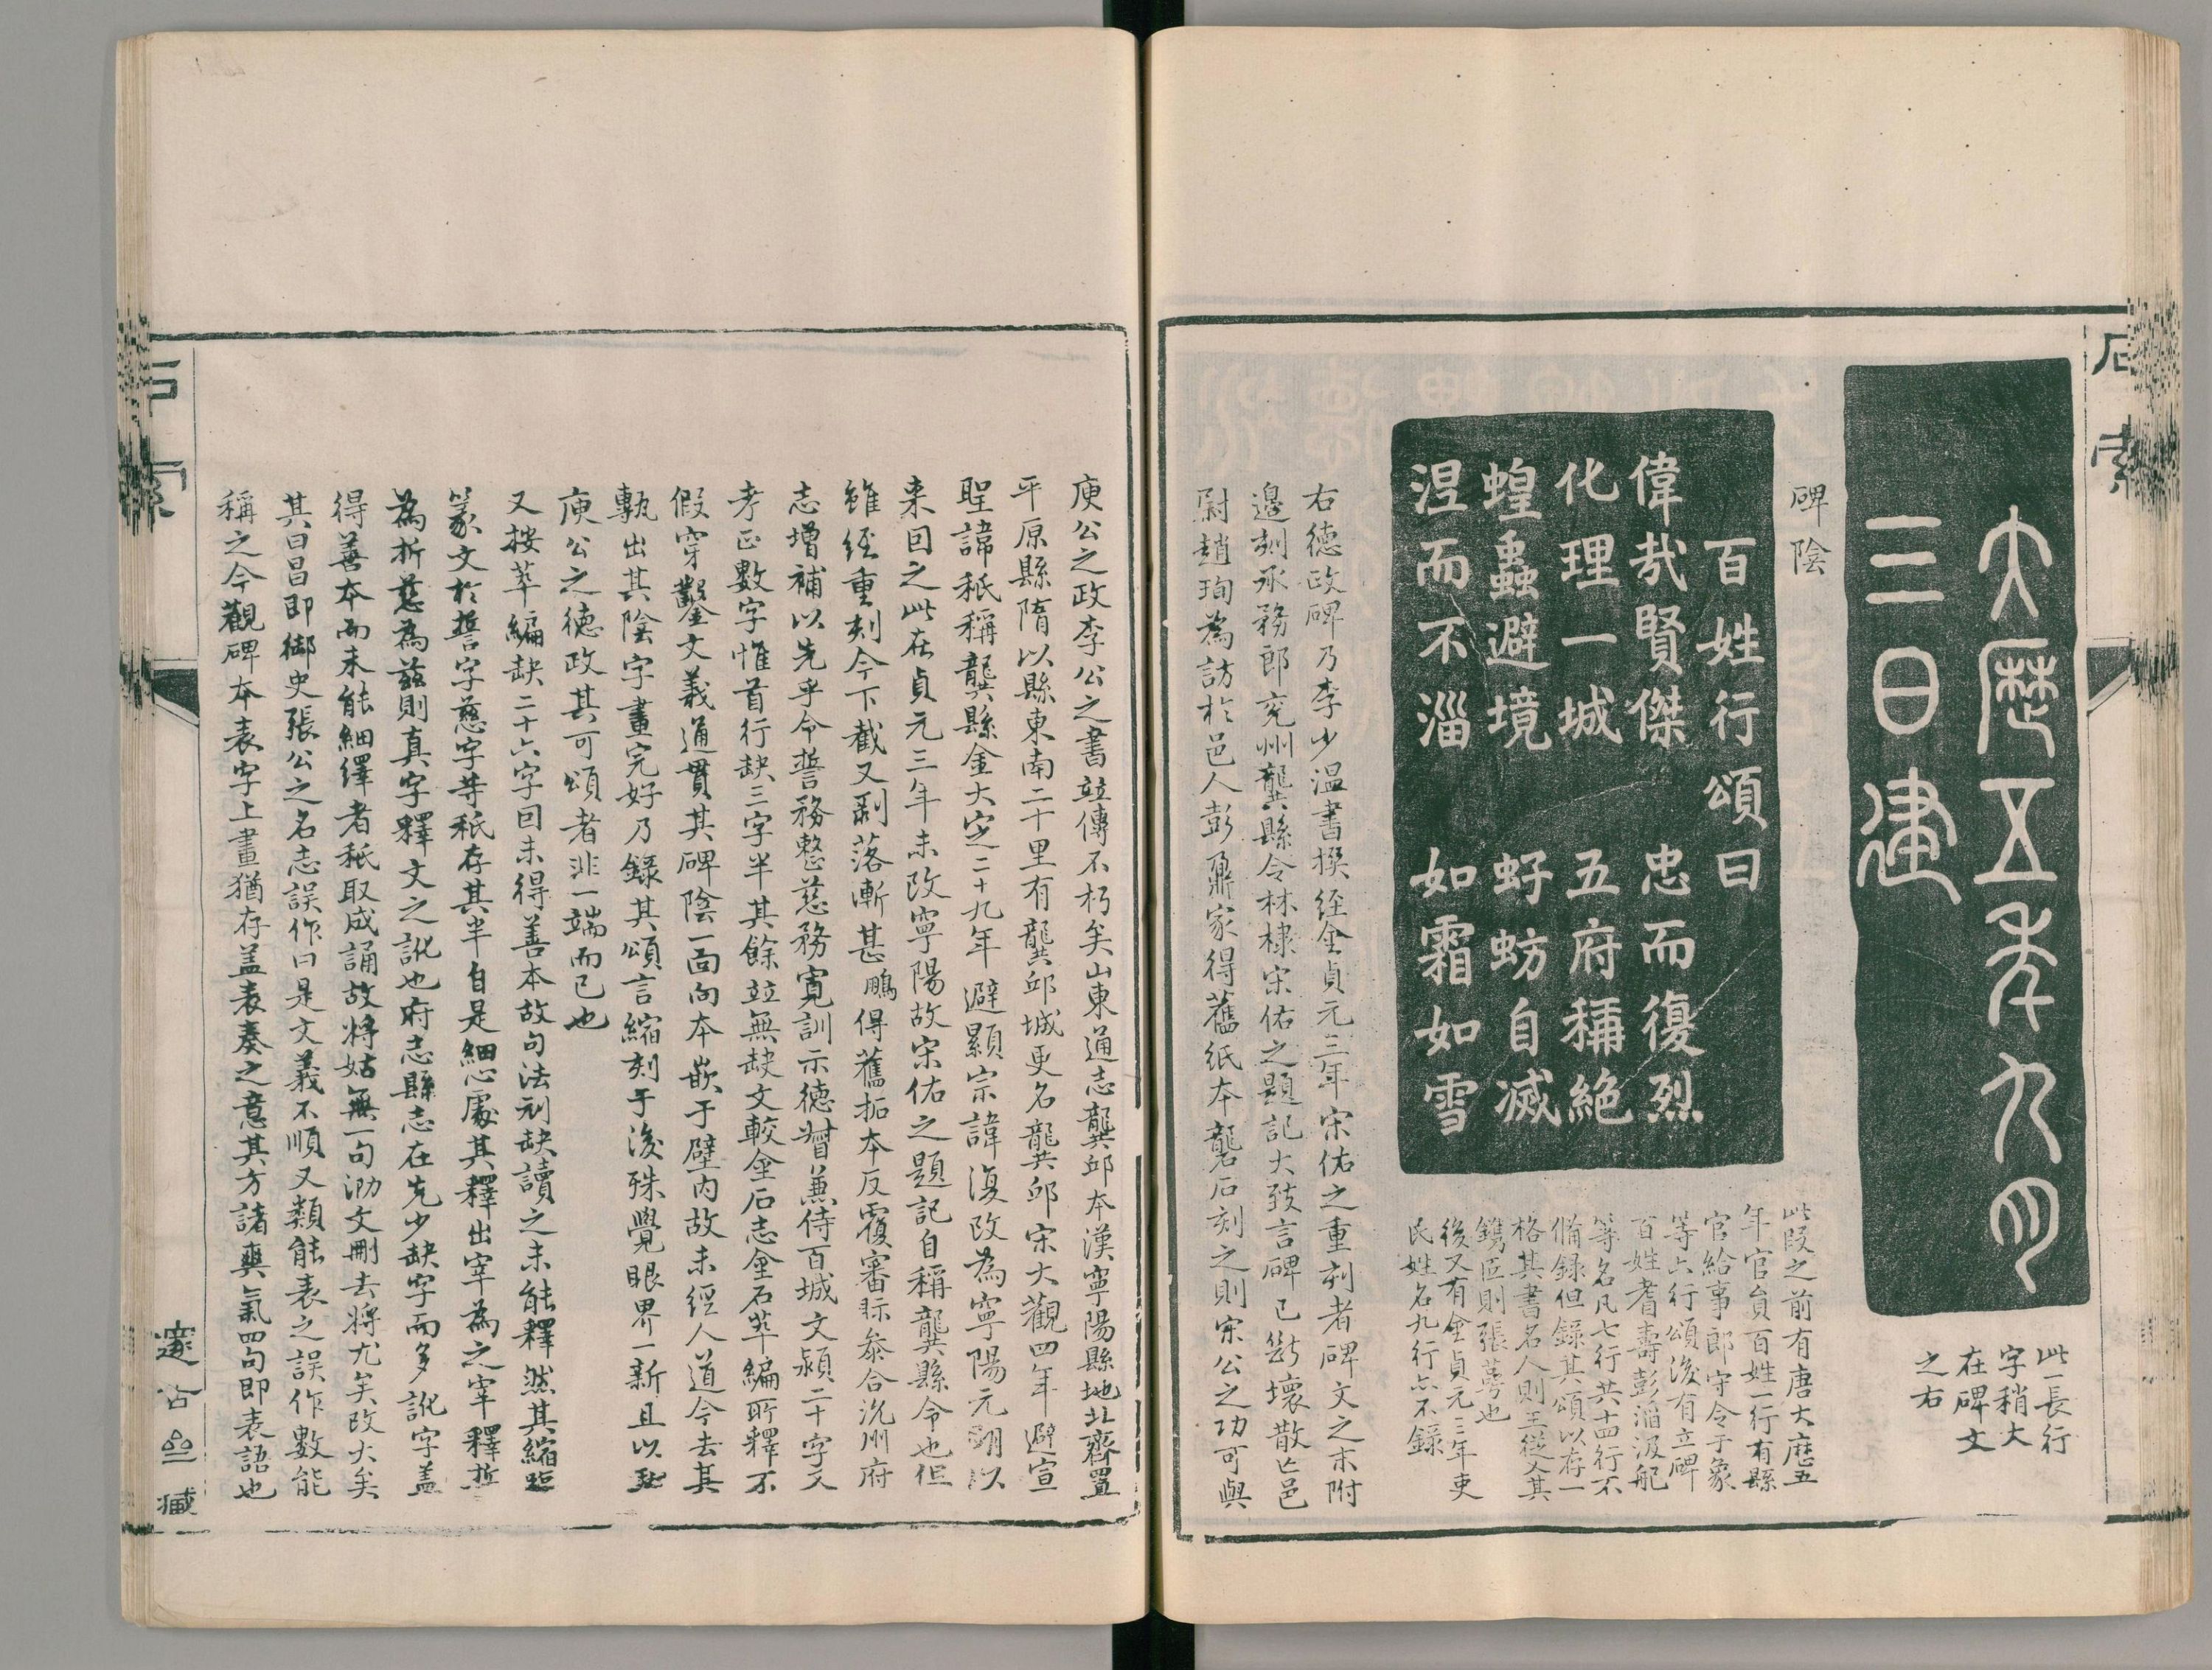 石索
大曆五年九月
三日建
此一長行
字稍大
在碑文
之右
碑陰
百姓行頌曰
偉哉賢傑 忠而復烈
化理一城 五府稱絕
蝗蟲避境 虸蚄自滅
涅而不淄 如霜如雪
此段之前有唐大曆五
年官員百姓一行有縣
官給事郎守令于象
等六行頌後有立碑
百姓耆壽彭滔汲舵
等名凡七行共十四行不
備錄但錄其頌以存一
格其書名人則王從乂其
鐫匠則張萼也
後又有金貞元三年吏
民姓名九行亦不錄
右德政碑乃李少溫書撰經金貞元三年宋佑之重刻者碑文之末附
邊刻承務郎兗州龔縣令林棣宋佑之題記大致言碑已斷壞散亡邑
尉趙珣為訪於邑人彭鼐家得舊紙本礱石刻之則宋公之功可與
庾公之政李公之書竝傳不朽矣山東通志龔邱本漢寧陽縣地北齊置
平原縣隋以縣東南二十里有龔邱城更名龔邱宋大觀四年避宣
聖諱秖稱龔縣金大定二十九年避顯宗諱復改為寧陽元朝以
來因之此在貞元三年未改寧陽故宋佑之題記自稱龔縣令也但
雖經重刻今下截又剥落漸甚鵬得舊拓本反覆審眎叅合沇州府
志增補以先乎令誓務整慈務寛訓示德詧兼侍百城文潁二十字又
考正數字惟首行缺三字半其餘竝無缺文較金石志金石萃編所釋不
假穿鑿文義通貫其碑陰一面向本嵌于壁內故未經人道今去其
甎出其陰字畫完好乃錄其頌言縮刻于後殊覺眼界一新且以班
庾公之德政其可頌者非一端而已也
又按萃編缺二十六字回未得善本故句法刓缺讀之未能釋然其縮臨
篆文於誓字慈字等秖存其半自是細心處其釋出宰為之宰釋悊
為折慈為茲則真字釋文之訛也府志縣志在先少缺字而多訛字蓋
得善本而未能細繹者秖取成誦故將姑無一句泐文刪去將尤矣改大矣
其曰昌即御史張公之名志誤作曰是文義不順又類能表之誤作數能
稱之今觀碑本表字上畫猶存蓋表奏之意其方諸爽氣四句即表語也
石索
邃古𠱾藏